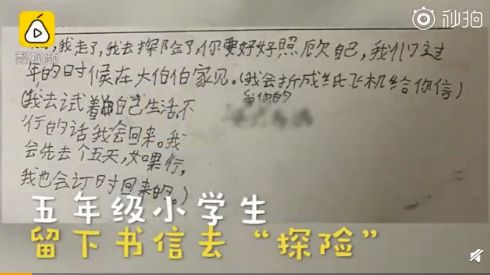 秒拍
梨视频
，我走了，我去探险了，你要好好照顾自己，我们过
年的时候在大伯伯家见。（我会折成纸飞机给你信）
当你的
（我去试着自己生活，不
行的话我会回来。我
会先去个五天，如果行，
我也会订时回来的。）
五年级小学生
留下书信去“探险”